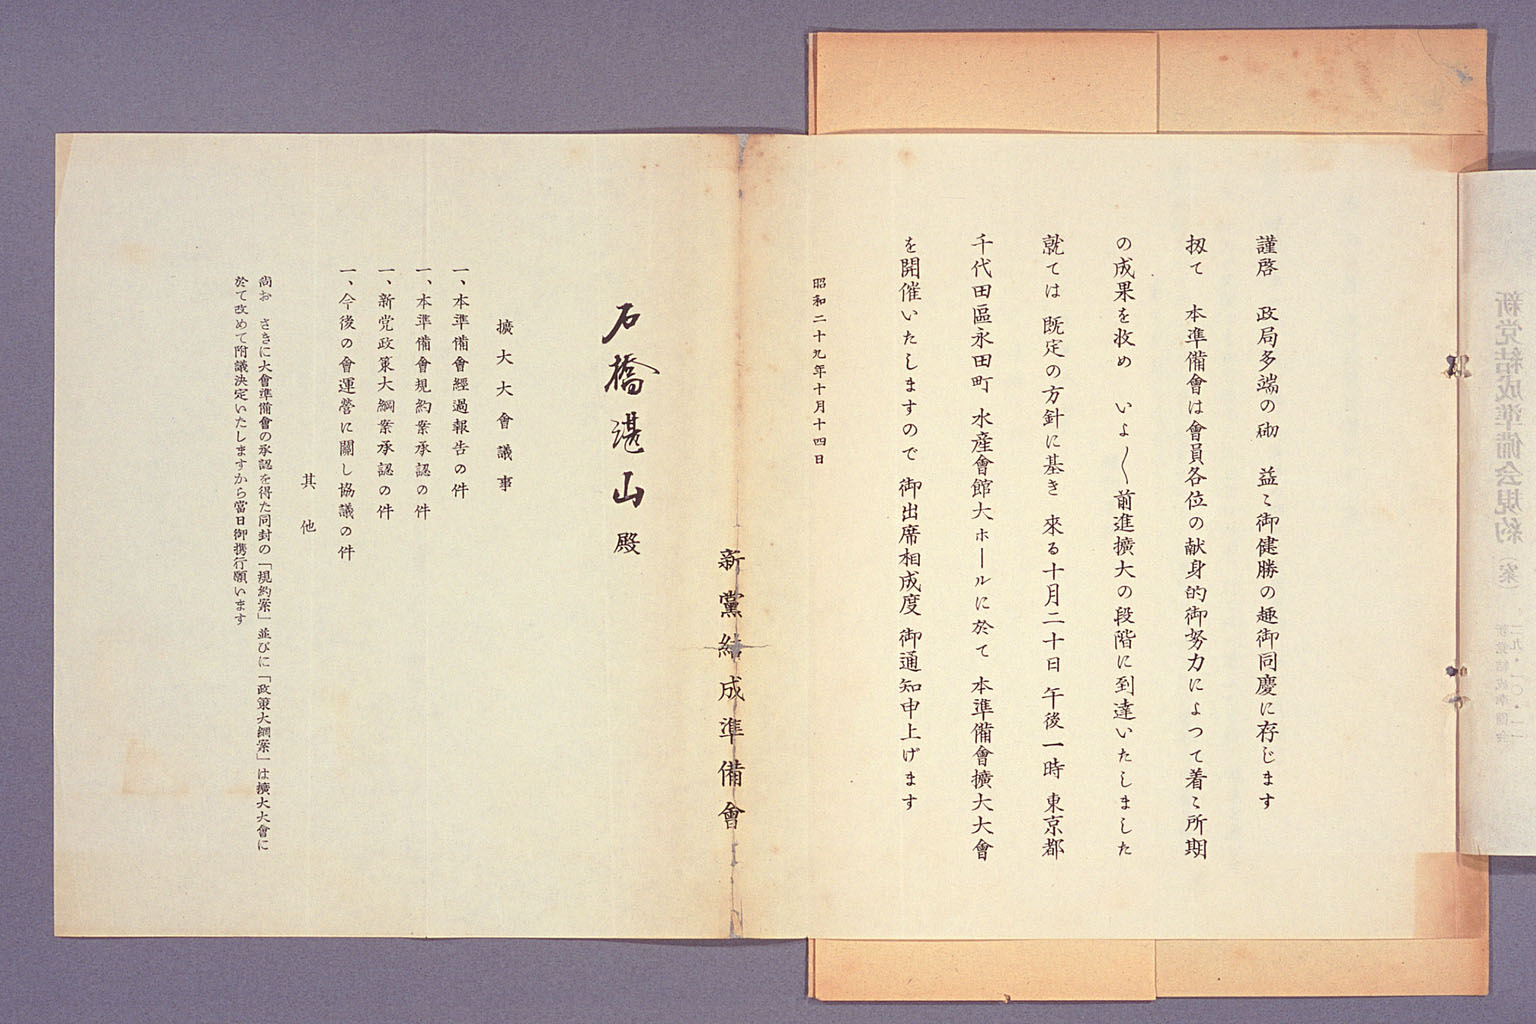 謹啓　政局多端の砌　益〻御健勝の趣御同慶に存じます
扨て　本準備會は會員各位の献身的御努力によつて着〻所期
の成果を收め　いよ〱前進擴大の段階に到達いたしました
就ては　既定の方針に基き　來る十月二十日　午後一時　東京都
千代田區永田町　水産會館大ホールに於て　本準備會擴大大會
を開催いたしますので　御出席相成度　御通知申上げます
昭和二十九年十月十四日
新黨結成準備會
石橋湛山殿
擴大大會議事
一、本準備會經過報告の件
一、本準備會規約案承認の件
一、新党政策大綱案承認の件
一、今後の會運營に關し協議の件
其他
尚お　さきに大會準備會の承認を得た同封の「規約案」並びに「政策大綱案」は擴大大會に
於て改めて附議決定いたしますから當日御携行願います
新党結成準備会規約（案）
二九・一〇・一一
新党結成準備会